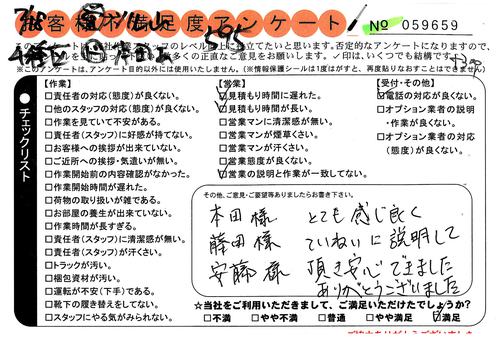 お客様不満足度アンケート
No 059659
595
※このアンケートは、アンケート目的以外には使用いたしません。(※情報保護シールは1度がすと、再度貼りなおすことはできません)
●チェックリスト
【作業】
□責任者の対応(態度)が良くない。
□他のスタッフの対応(態度)が良くない。
□作業を見ていて不安がある。
□責任者(スタッフ)に好感が持てない。
□お客様への挨拶が出来ていない。
□ご近所への挨拶・気遣いが無い。
□作業開始前の内容確認がなかった。
□作業開始時間が遅れた。
□荷物の取り扱いが雑である。
□お部屋の養生が出来ていない。
□作業時間が長すぎる。
□責任者(スタッフ)に清潔感が無い。
□責任者(スタッフ)が汗くさい。
□トラックが汚い。
□梱包資材が汚い。
□運転が不安(下手)である。
□靴下の履き替えをしてない。
□スタッフにやる気がみられない。
【営業】
☑見積もり時間に遅れた。
☑見積もり時間が長い。
□営業マンに清潔感が無い。
□営業マンが煙草くさい。
□営業マンが汗くさい。
□営業態度が良くない。
☑営業の説明と作業が一致してない。
【受付・その他】
☑電話の対応が良くない。
□オプション業者の説明・作業が良くない。
□オプション業者の対応(態度)が良くない。
その他、ご意見・ご要望等ありましたらお書き下さい。
本田様 とても感じ良く
藤田様 ていねいに説明して
安藤様 頂き安心できました
ありがとうございました
★当社をご利用いただきまして、ご満足いただけたでしょうか?
□不満 □やや不満 □普通 □やや満足 ☑満足